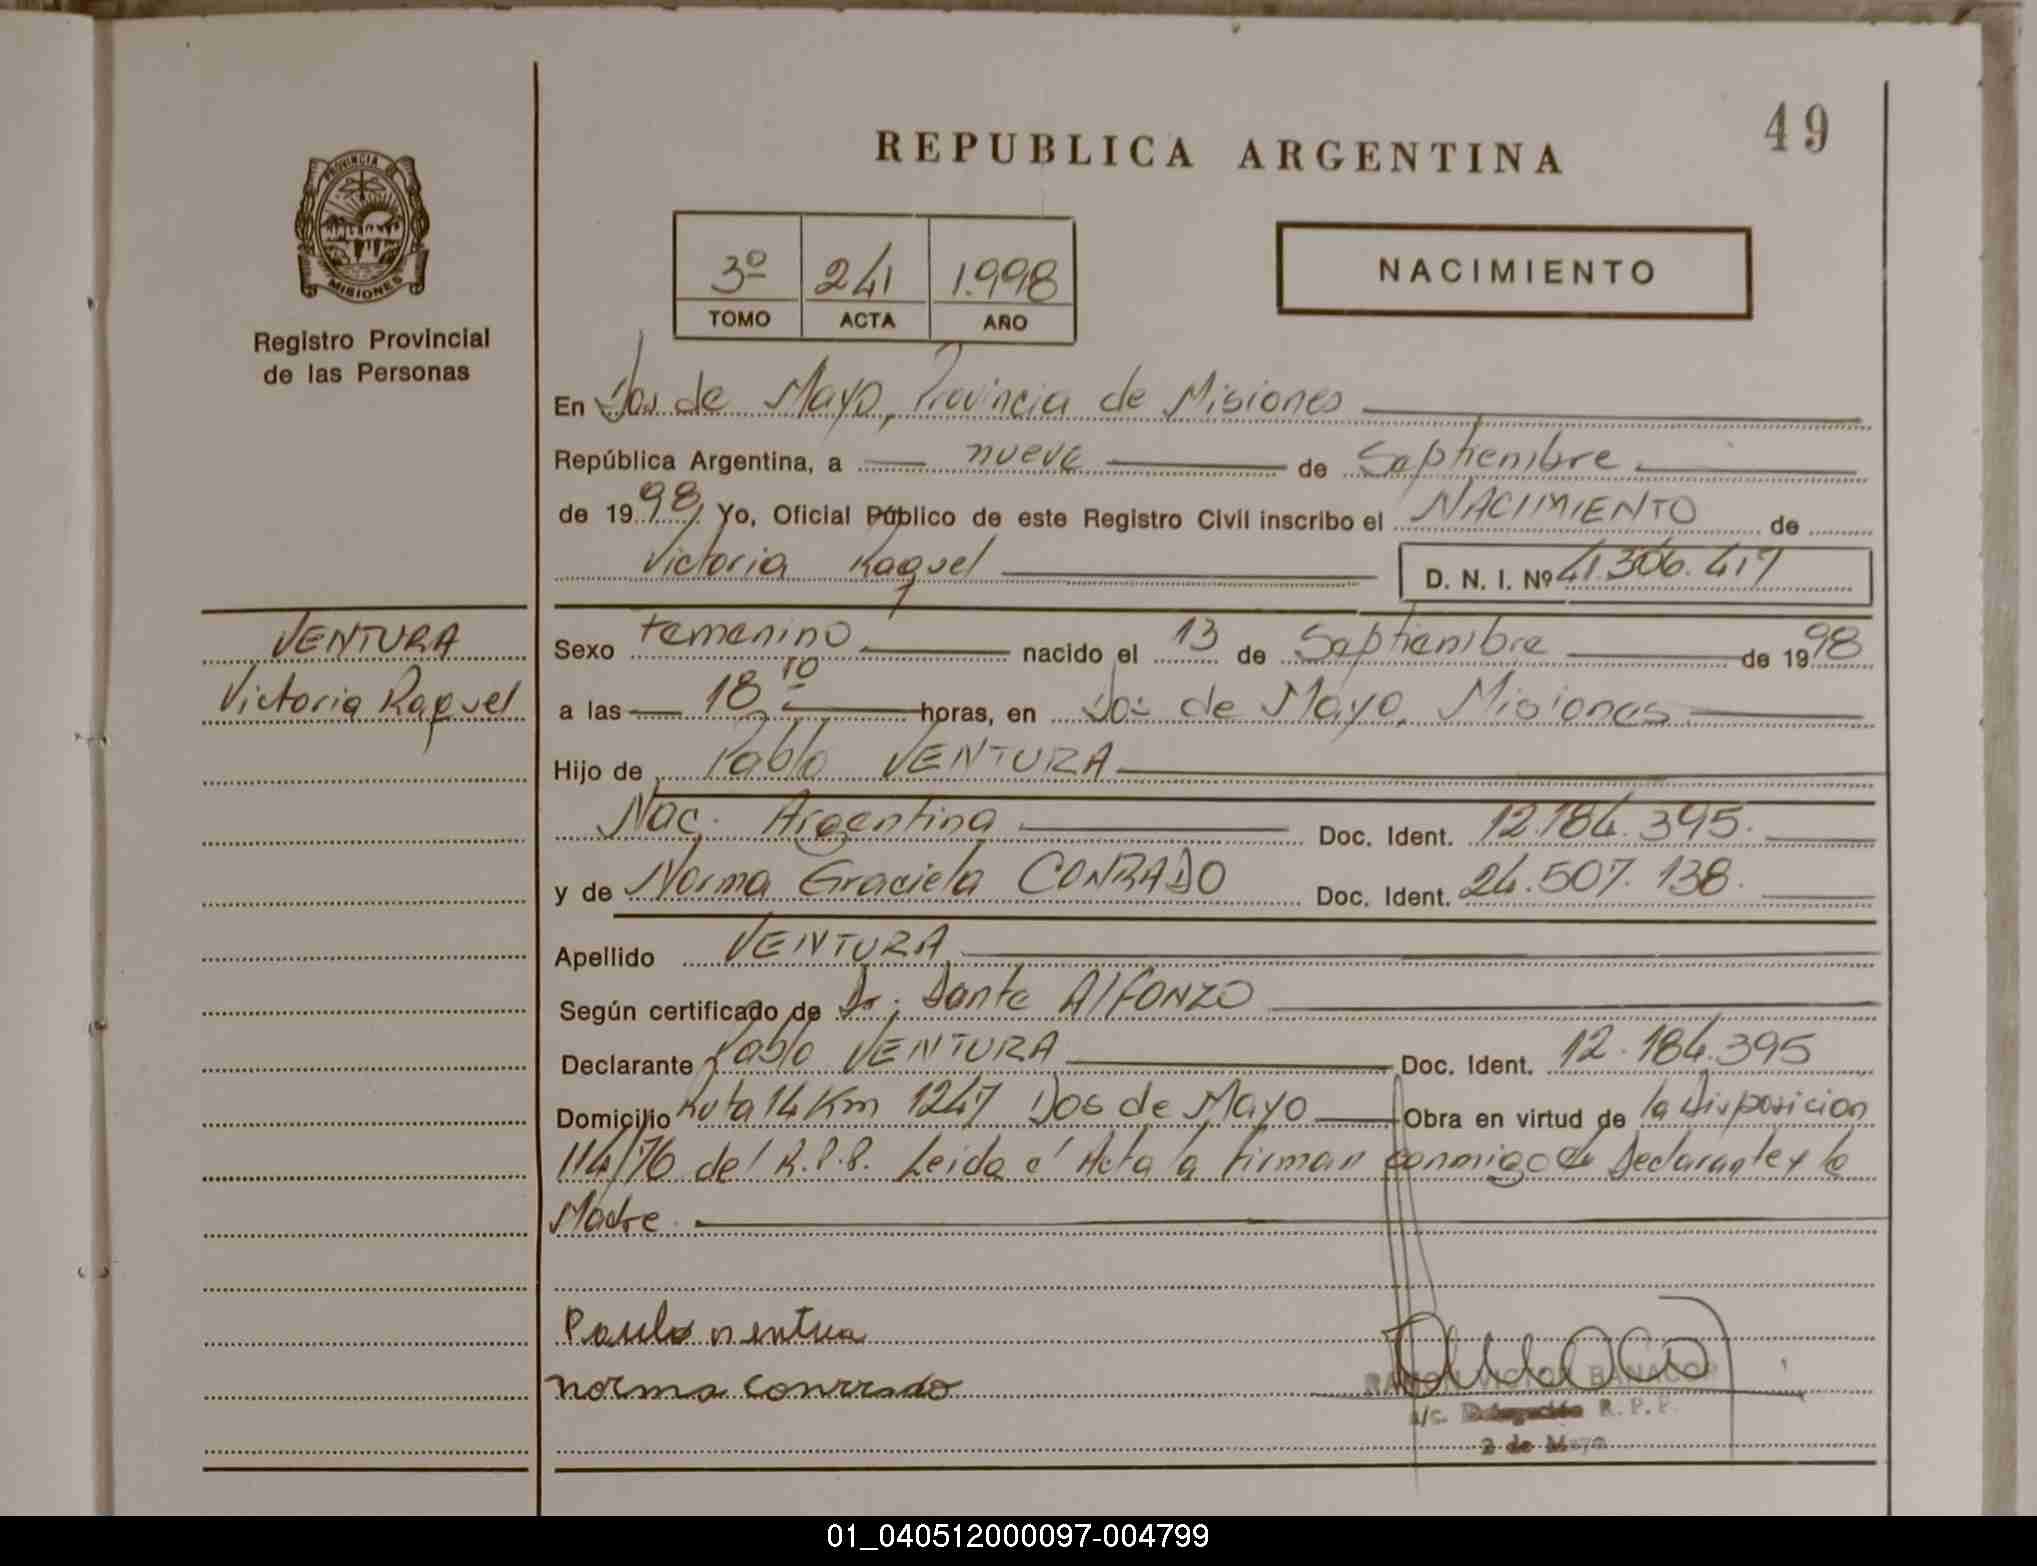 49
REPUBLICA ARGENTINA
PROVINCIA DE
MISIONES
Registro Provincial
de las Personas
3º 241 1.998
TOMO ACTA AÑO
NACIMIENTO
En Dos de Mayo, Provincia de Misiones
República Argentina, a nueve de Septiembre
de 1998, Yo, Oficial Público de este Registro Civil inscribo el NACIMIENTO de
Victoria Raquel D. N. I. Nº 41.306.417
VENTURA
Victoria Raquel
Sexo femenino nacido el 13 de Septiembre de 1998
a las 18 10 horas, en Dos de Mayo, Misiones
Hijo de Pablo VENTURA
Nac. Argentina Doc. Ident. 12.184.395.
y de Norma Graciela CONRADO Doc. Ident. 24.507.138.
Apellido VENTURA
Según certificado de Dr. Dante AlFONZO
Declarante Pablo VENTURA Doc. Ident. 12.184.395
Domicilio Ruta 14 Km 1247 Dos de Mayo Obra en virtud de la Disposicion
114/76 del R.P.P. Leida el Acta la firman conmigo el Declarante y la
Madre.
norma conrrado
a/c. Delegación R. P. P.
2 de Mayo
01_040512000097-004799